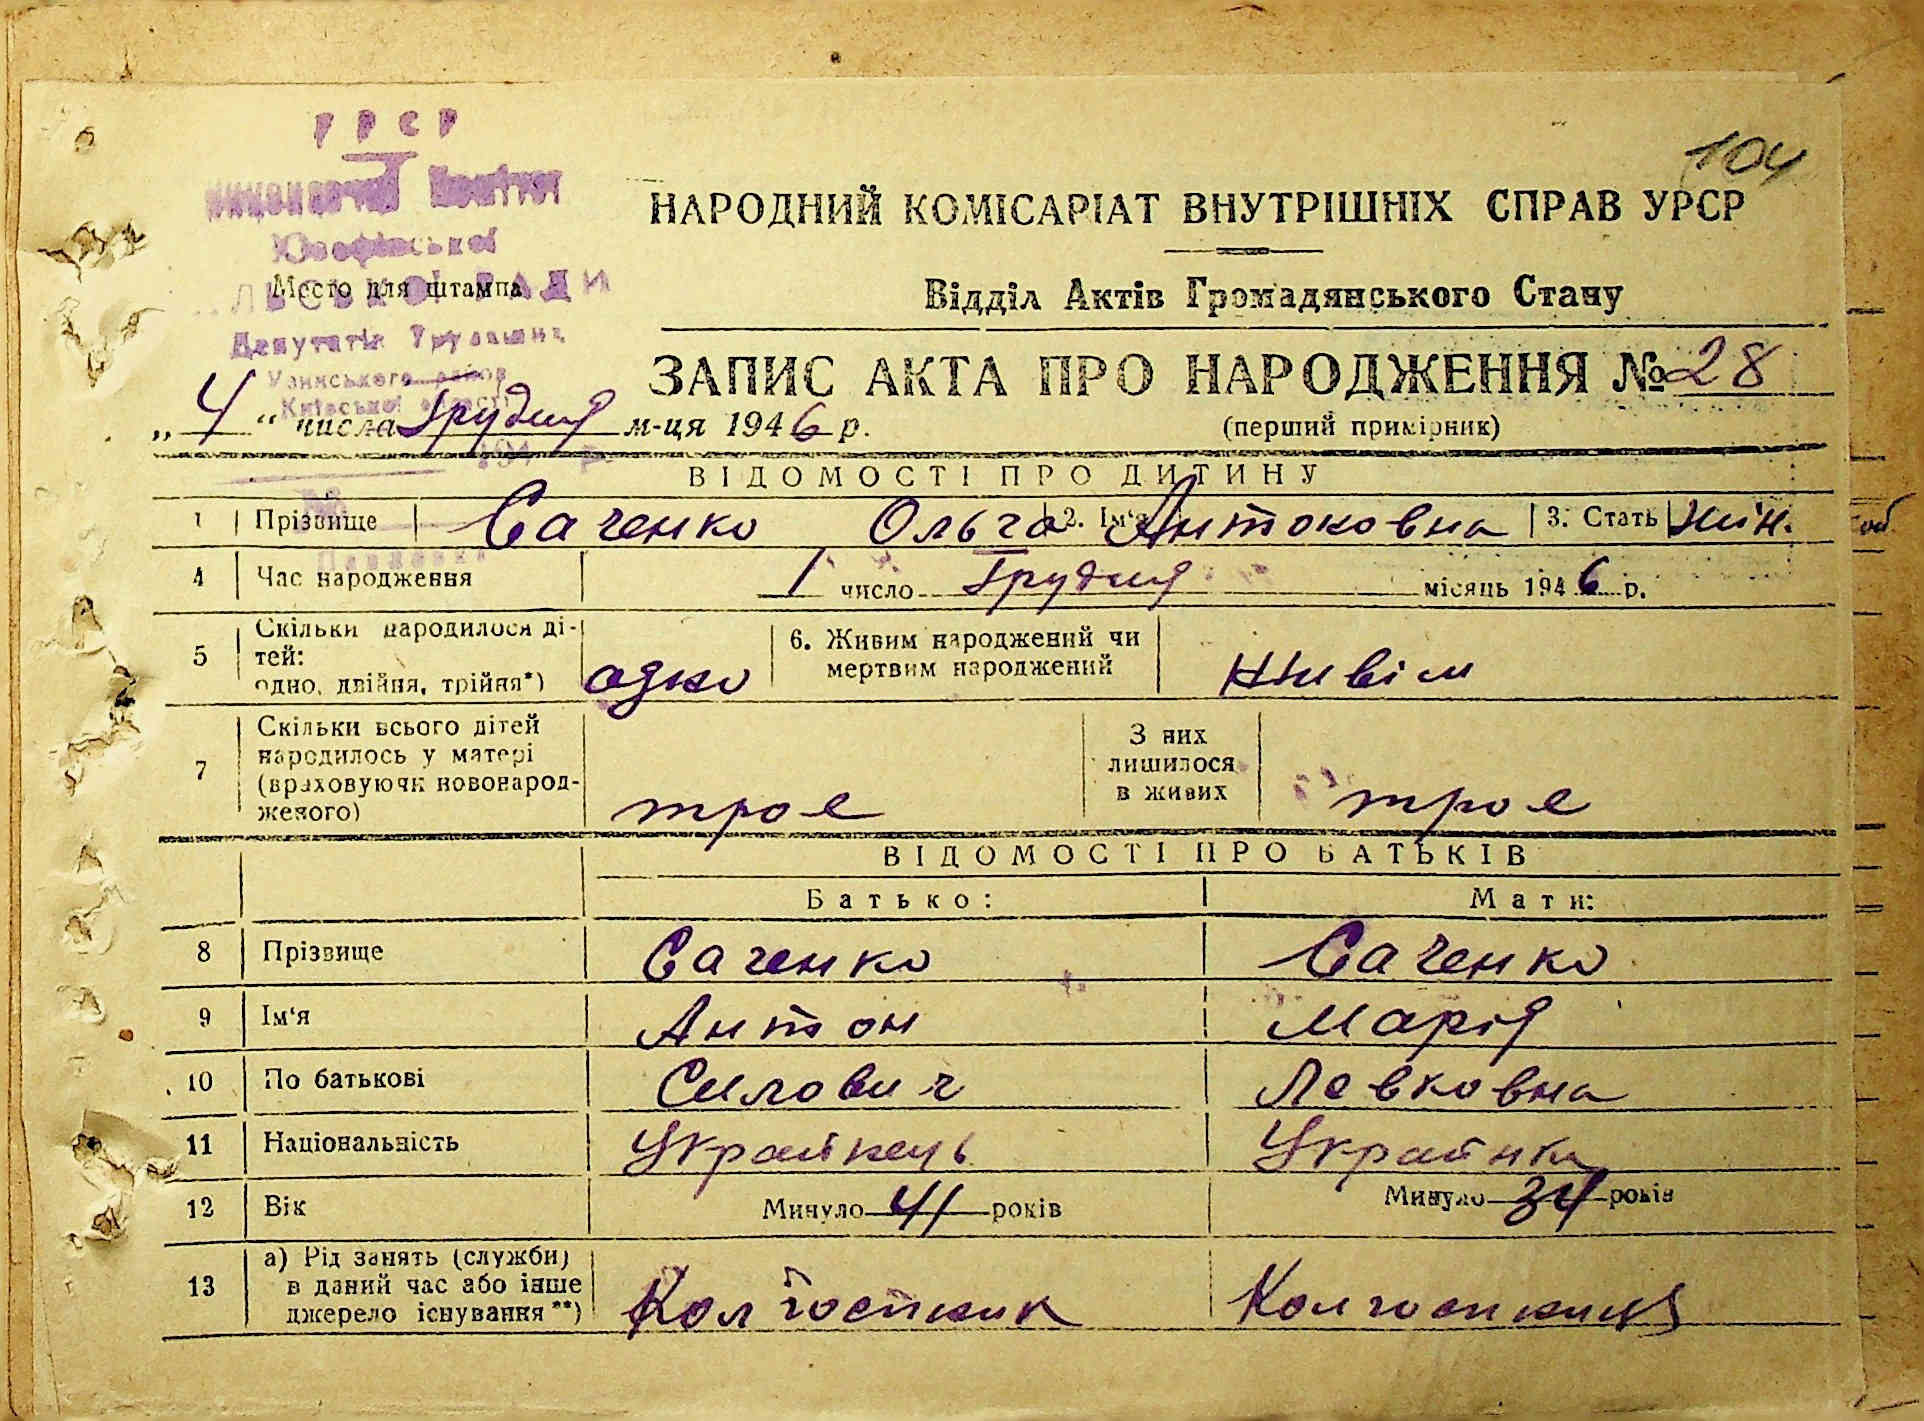 УРСР
104
Виконавчий Комітет
НАРОДНИЙ КОМІСАРІАТ ВНУТРІШНІХ СПРАВ УРСР
Место для штампа
Відділ Актів Громадянського Стану
Депутатів Трудящих
ЗАПИС АКТА ПРО НАРОДЖЕННЯ № 28
Узинського район
Київської області
„ 4 “ числа Грудня м-ця 1946 р.
(перший примірник)
ВІДОМОСТІ ПРО ДИТИНУ
1 Прізвище Саченко Ольга 2. Ім'я Антоновна 3. Стать жін.
4 Час народження 1 число Грудня місяць 1946 р.
5 Скільки народилося ді-
тей:
одно, двійня, трійня*) одно
6. Живим народжений чи
мертвим народжений Живім
7 Скільки всього дітей
народилось у матері
(враховуючи новонарод-
женого) троє
З них
лишилося
в живих троє
ВІДОМОСТІ ПРО БАТЬКІВ
Батько: Мати:
8 Прізвище Саченко Саченко
9 Ім'я Антон Марія
10 По батькові Силович Левковна
11 Національність Українець Українка
12 Вік Минуло 41 років Минуло 34 років
13 а) Рід занять (служби)
в даний час або інше
джерело існування**) Колгоспник Колгоспниця